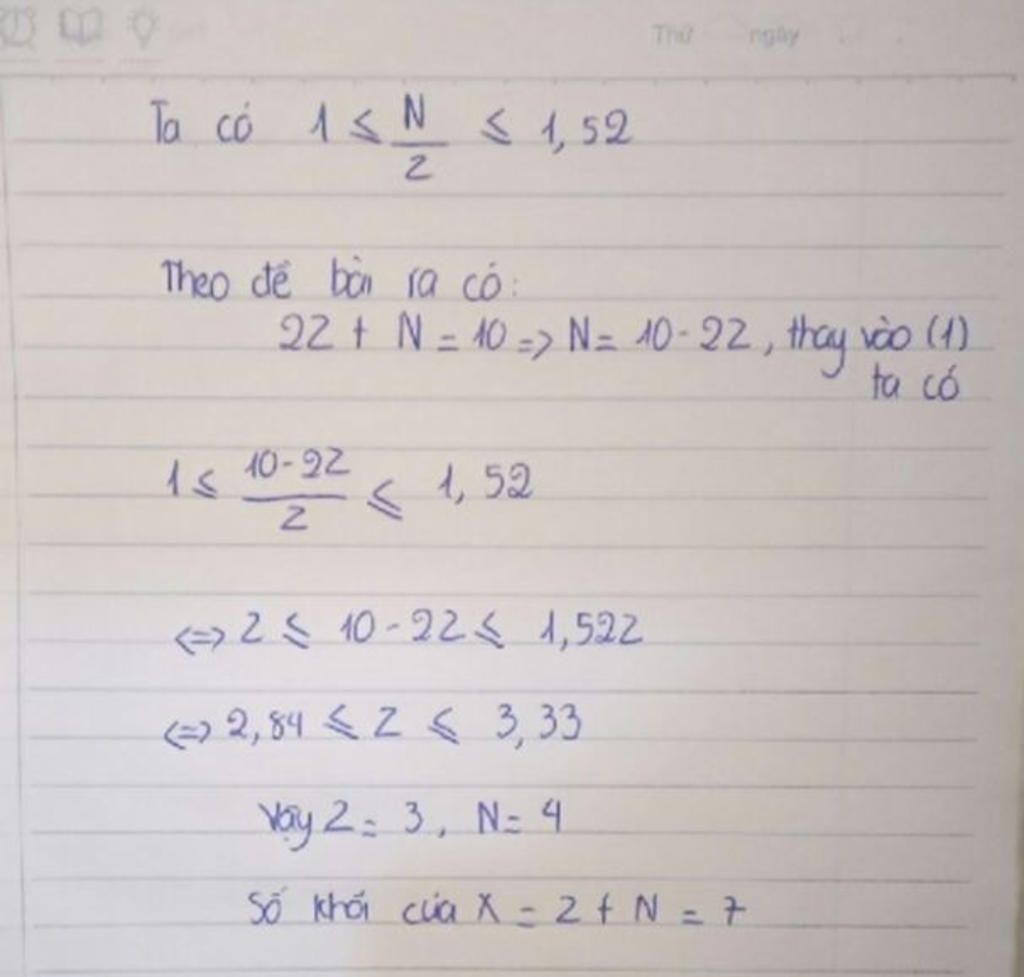 Thứ ngày
Ta có 1 ≤ N/Z ≤ 1,52
Theo đề bài ra có:
2Z + N = 10 => N = 10 - 2Z, thay vào (1)
ta có
1 ≤ (10 - 2Z)/Z ≤ 1,52
<=> Z ≤ 10 - 2Z ≤ 1,52Z
<=> 2,84 ≤ Z ≤ 3,33
Vậy Z = 3, N = 4
Số khối của X = Z + N = 7